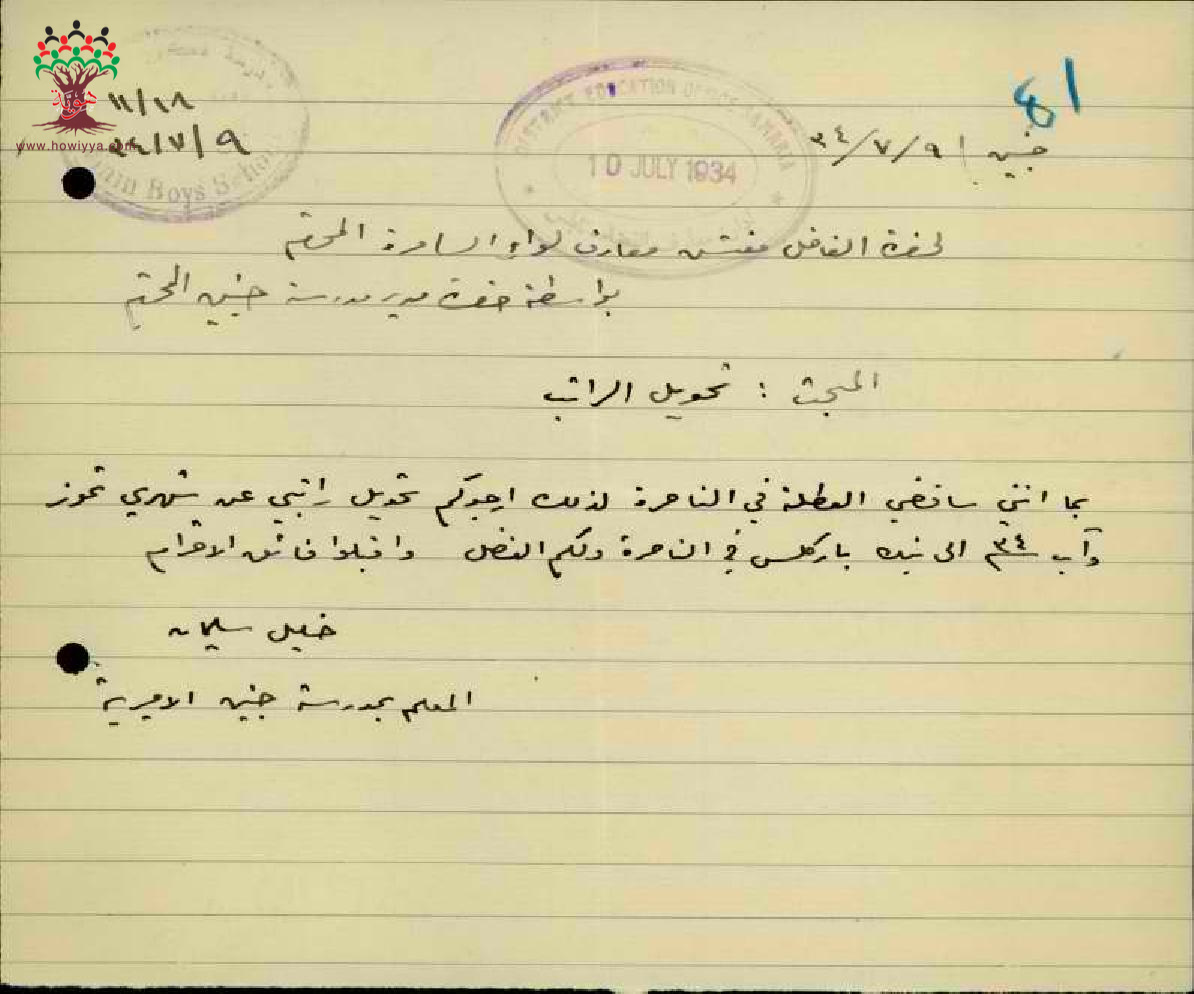 ١١/١٨
٣٤/٧/٩
www.howiyya.com
Boys School
DISTRICT EDUCATION OFFICE SAMARIA
10 JULY 1934
81
جنين ٣٤/٧/٩
لحضرة الفاضل مفتش معارف لواء السامرة المحترم
بواسطة حضرة مدير مدرسة جنين المحترم
المبحث : تحويل الراتب
بما انني ساقضي العطلة في الناصرة لذلك ارجوكم تحويل راتبي عن شهري تموز
وآب ٣٤ الى بنك باركلس في الناصرة ولكم الفضل واقبلوا فائق الاحترام
خليل سليمان
المعلم بمدرسة جنين الاميرية